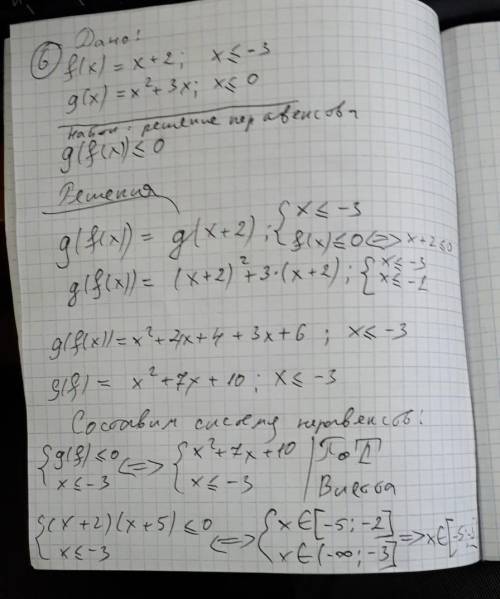 ⑥ Дано:
f(x) = x+2; x ≤ -3
g(x) = x² + 3x; x ≤ 0
Найти: решение неравенства
g(f(x)) ≤ 0
Решения
g(f(x)) = g(x+2); { x ≤ -3
f(x) ≤ 0 <=> x+2 ≤ 0
g(f(x)) = (x+2)² + 3·(x+2); { x ≤ -3
x ≤ -2
g(f(x)) = x² + 4x + 4 + 3x + 6 ; x ≤ -3
g(f) = x² + 7x + 10 ; x ≤ -3
Составим систему неравенств:
{ g(f) ≤ 0 <=> { x² + 7x + 10 | По Т
x ≤ -3 x ≤ -3 | Виета
{ (x+2)(x+5) ≤ 0 <=> { x ∈ [-5; -2] => x ∈ [-5; -3]
x ≤ -3 x ∈ (-∞; -3]